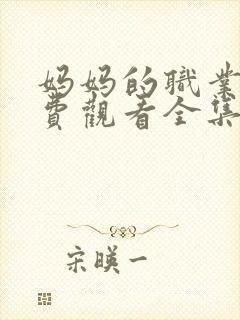 妈妈的職業
費觀看全集
宋暎一